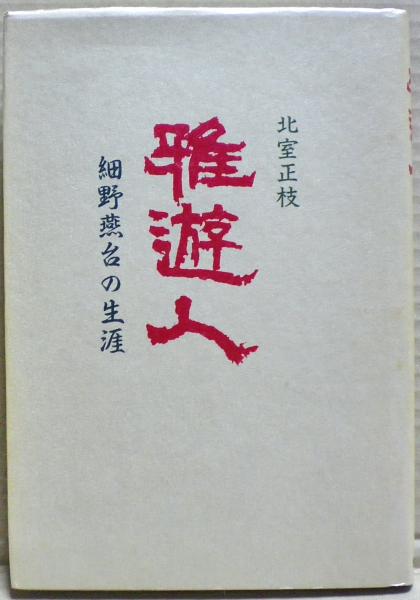 北室正枝
雅遊人
細野燕台の生涯